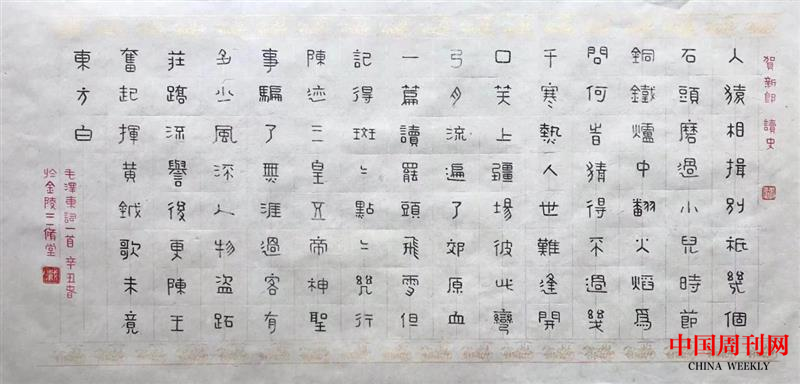 賀新郎 讀史
人猿相揖別衹幾個
石頭磨過小兒時節
銅鐵爐中翻火焰爲
問何旹猜得不過幾
千寒熱人世難逢開
口笑上疆場彼此彎
弓月流遍了郊原血
一篇讀罷頭飛雪但
記得斑〻點〻幾行
陳迹三皇五帝神聖
事騙了無涯過客有
多少風流人物盜跖
莊蹻流譽後更陳王
奮起揮黃鉞歌未竟
東方白
毛澤東詞一首 辛丑春
於金陵三脩堂
中国周刊网
CHINA WEEKLY